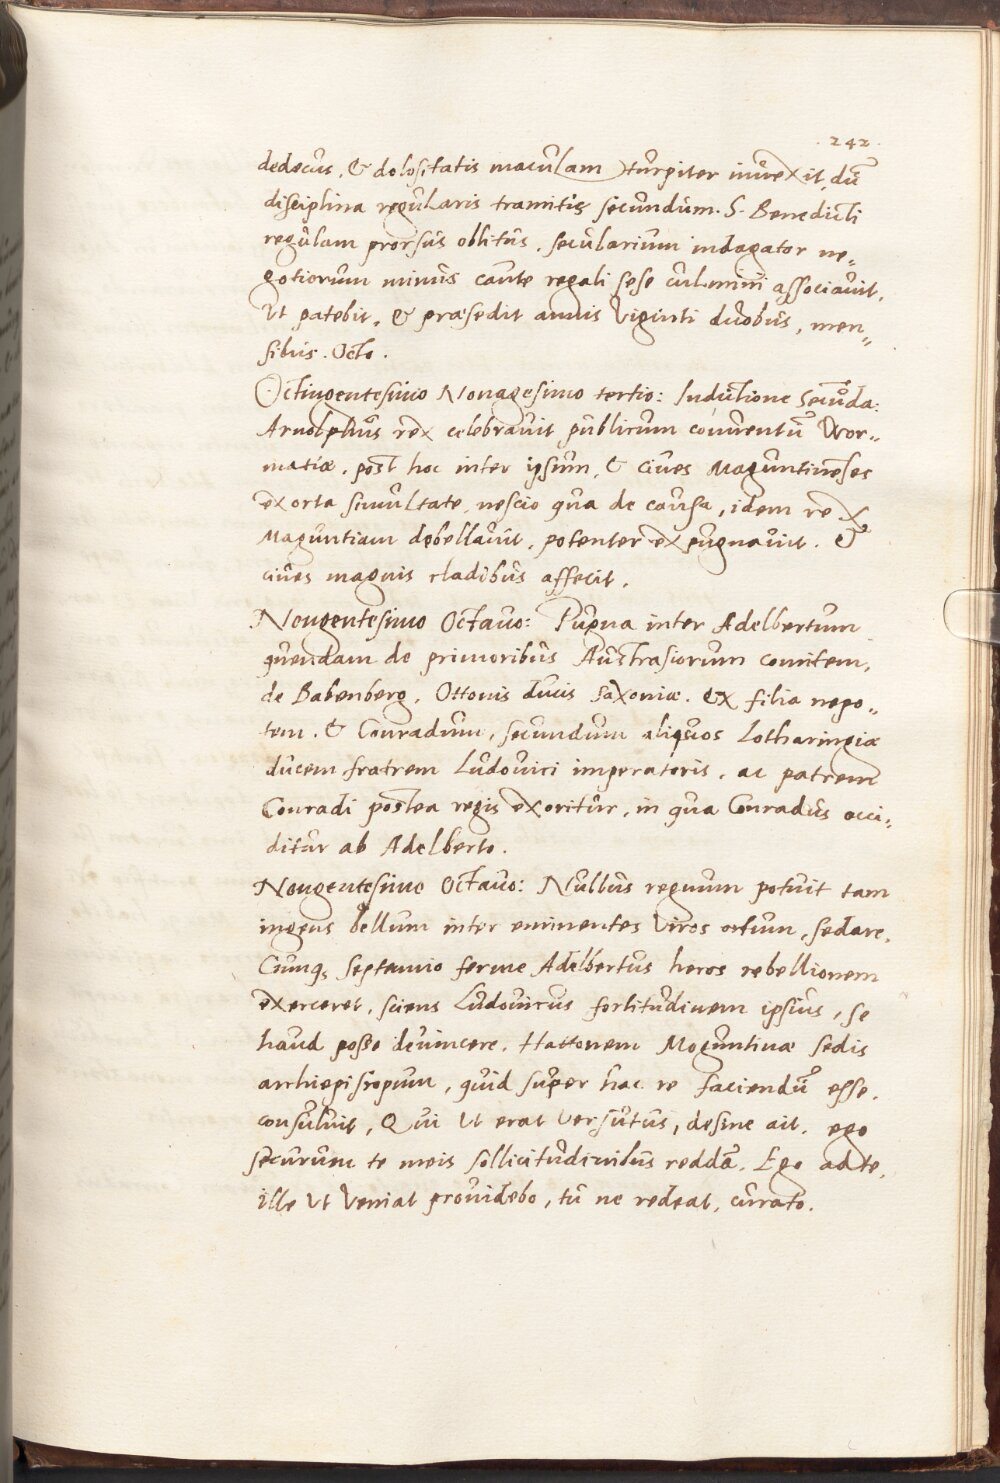 242.
dedecus, & dolositatis maculam turpiter invexit, dū
disciplina regularis tramitis secundum. S. Benedicti
regulam prorsus oblitus, secularium indagator ne„
gotiorum minus caute regali sese culmini associavit,
Vt patebit, & præsedit annis Viginti duobus, men„
sibus. Octo.
Octingentesimo Nonagesimo tertio: Indictione Secūda:
Arnolphus rex celebravit publicum conventū Wor„
matiæ, post hoc inter ipsum, & cives Maguntinenses
exorta simultate, nescio qua de causa, idem rex
Maguntiam debellavit, potenter expugnavit. &
cives magnis cladibus affecit.
Nongentesimo Octavo: Pugna inter Adelbertum
quendam de primoribus Austrasiorum comitem,
de Babenberg, Ottonis ducis Saxoniæ. ex filia nepo„
tem. & Conradum, secundum aliquos Lotharingiæ
ducem fratrem Ludovici imperatoris, ac patrem
Conradi postea regis exoritur, in qua Conradus occi„
ditur ab Adelberto.
Nongentesimo Octavo: Nullus regnum potuit tam
ingens bellum inter eminentes Viros ortum, sedare,
Cumq; septennio ferme Adelbertus heros rebellionem
exerceret, sciens Ludovicus fortitudinem ipsius, se
haud posse devincere, Hattonem Moguntinæ sedis
archiepiscopum, quid super hac re faciendū esse,
consuluit, Qui Vt erat versutus, desine ait, ego
securum te meis sollicitudinibus reddā. Ego ad te,
ille Vt Veniat providebo, tu ne redeat, curato.